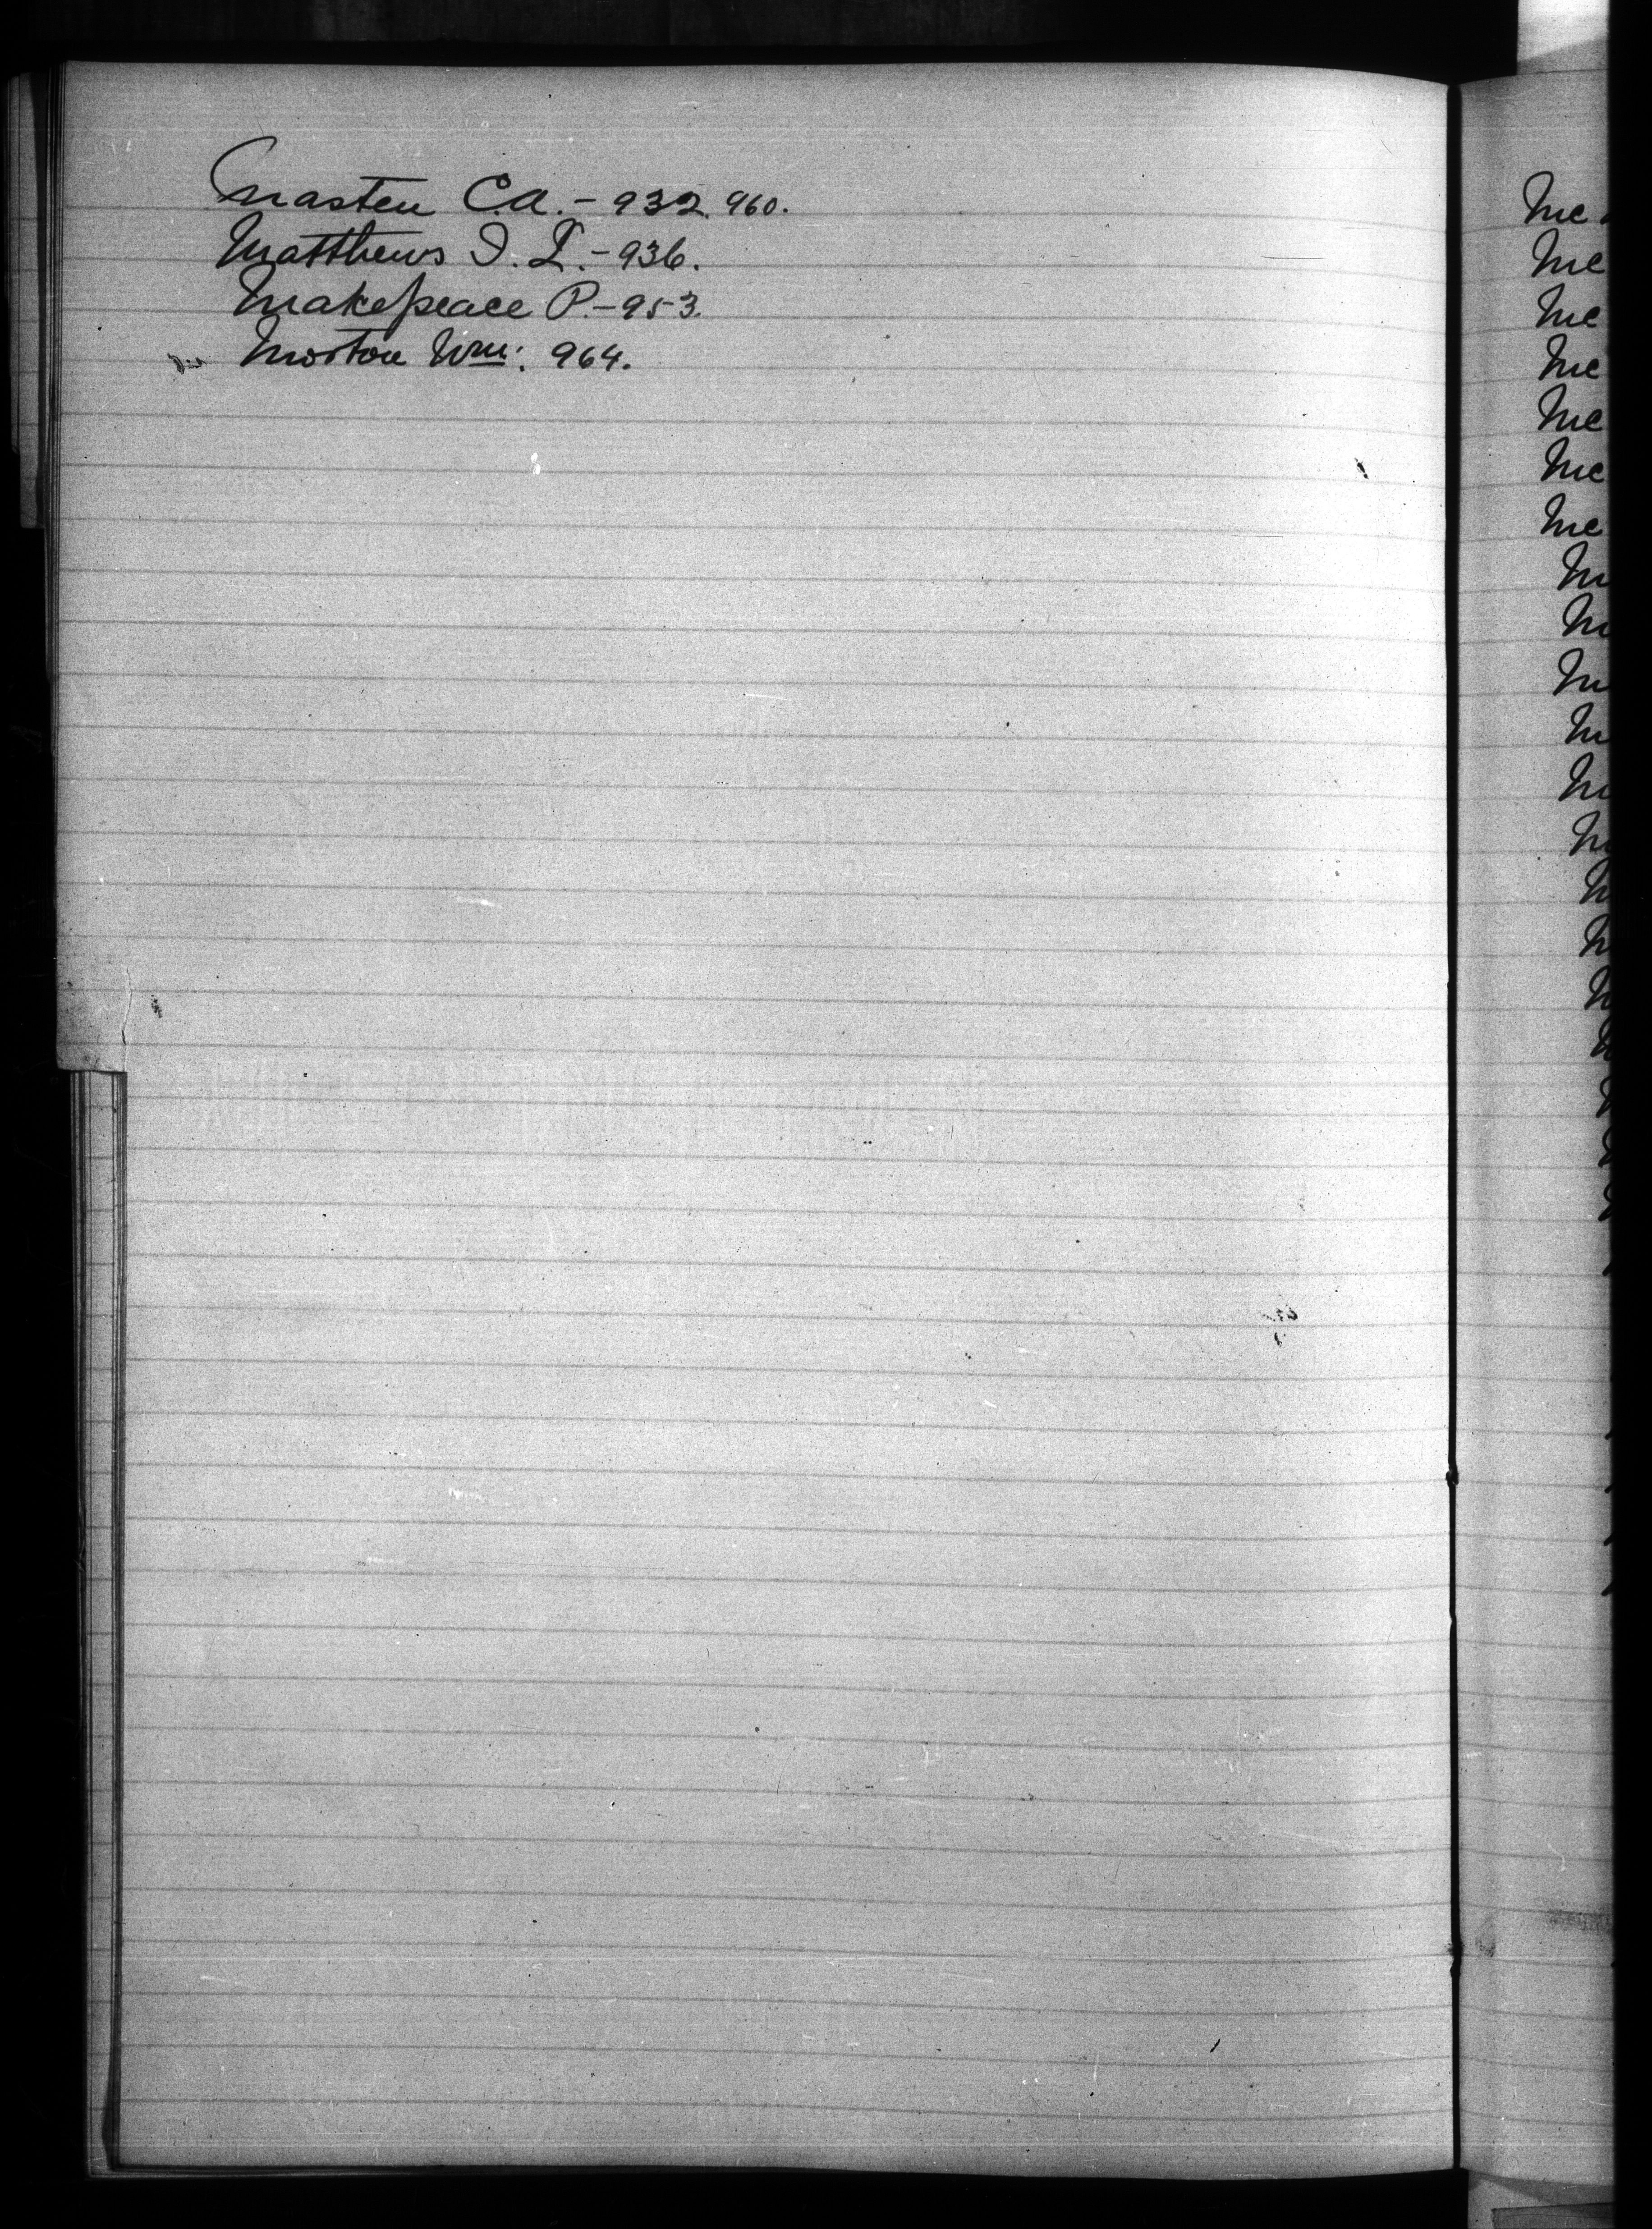 Masten C.A. - 932. 960.
Matthews I. L. - 936.
Makepeace P. - 953.
Morton Wm: 964.
Mc
Mc
Mc
Mc
Mc
Mc
Mc